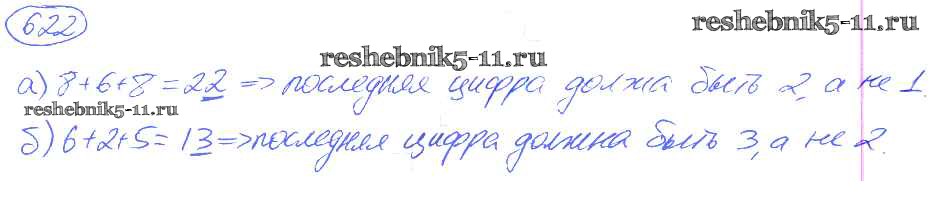 622
reshebnik5-11.ru
reshebnik5-11.ru
а) 8+6+8=22 => последняя цифра должа быть 2, а не 1.
reshebnik5-11.ru
б) 6+2+5=13 => последняя цифра должна быть 3, а не 2.